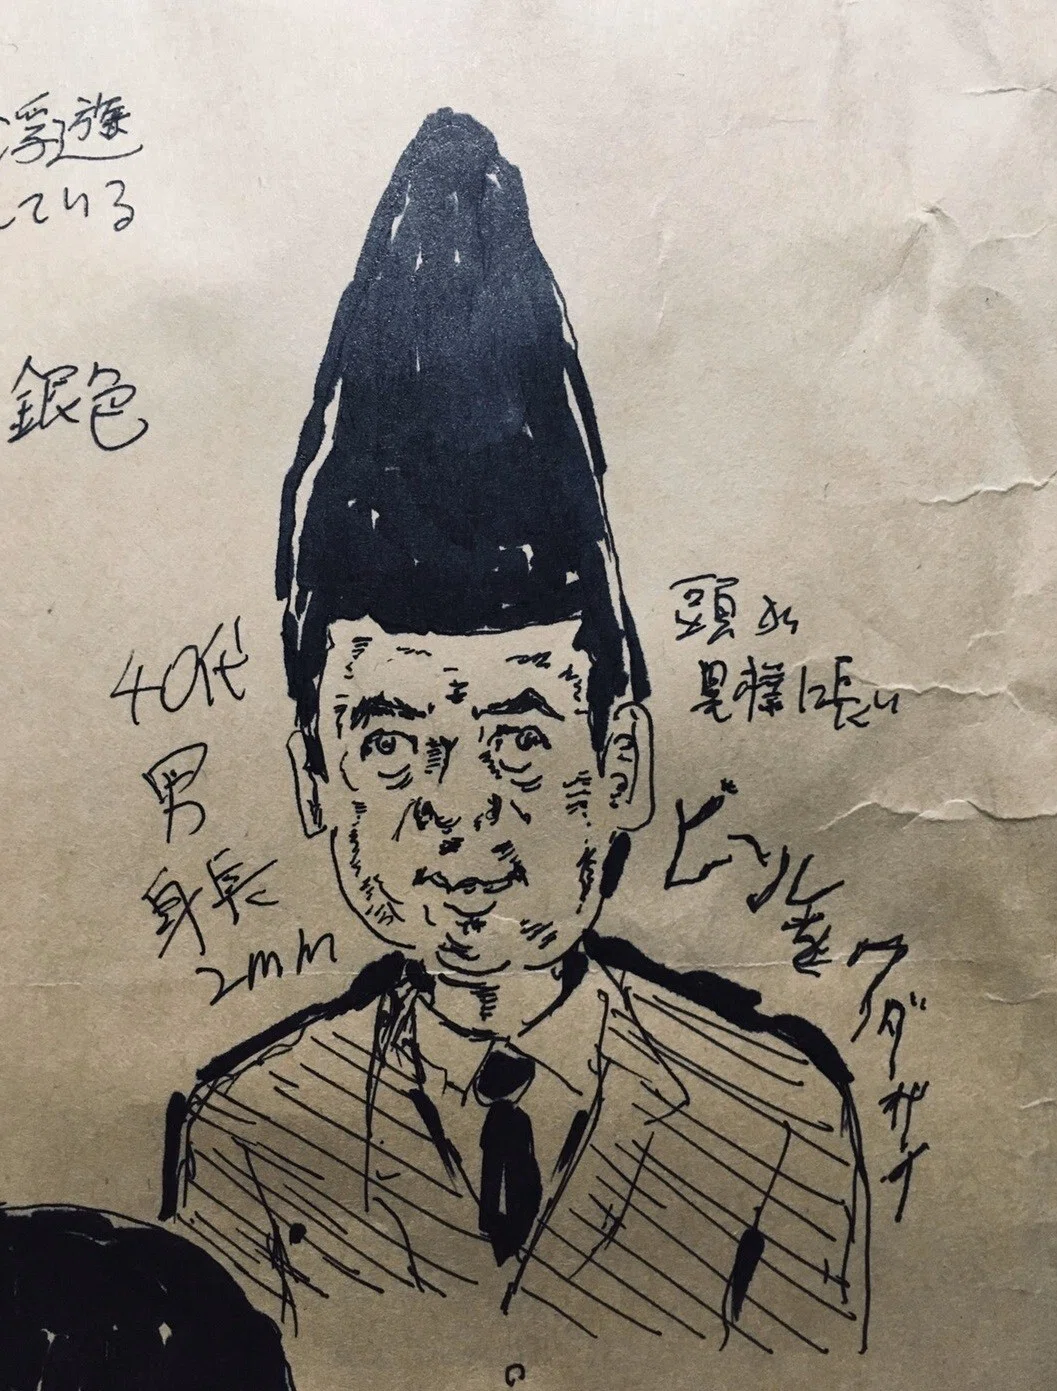 浮遊
している
銀色
40代
男
身長
2mm
頭が
異様に長い
ビールを
クダサイ